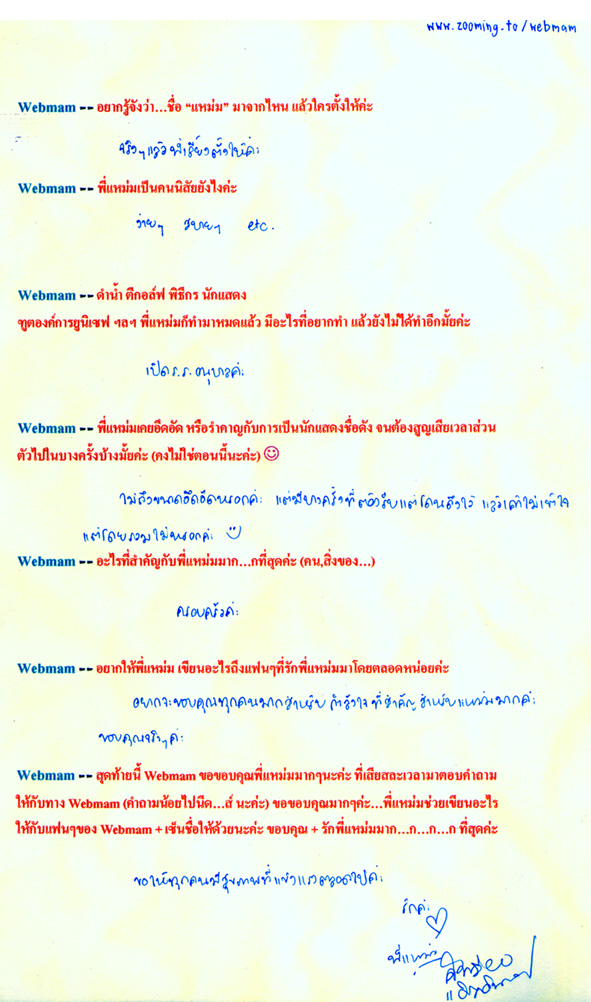 www.zooming.to/webmam
Webmam -- อยากรู้จังว่า...ชื่อ “แหม่ม” มาจากไหน แล้วใครตั้งให้ค่ะ
จริงๆแล้ว พี่เลี้ยงตั้งให้ค่ะ
Webmam -- พี่แหม่มเป็นคนนิสัยยังไงค่ะ
ง่ายๆ สบายๆ etc.
Webmam -- ดำน้ำ ตีกอล์ฟ พิธีกร นักแสดง
ทูตองค์การยูนิเซฟ ฯลฯ พี่แหม่มก็ทำมาหมดแล้ว มีอะไรที่อยากทำ แล้วยังไม่ได้ทำอีกมั้ยค่ะ
เปิด ร.ร. อนุบาลค่ะ
Webmam -- พี่แหม่มเคยอึดอัด หรือรำคาญกับการเป็นนักแสดงชื่อดัง จนต้องสูญเสียเวลาส่วน
ตัวไปในบางครั้งบ้างมั้ยค่ะ (คงไม่ใช่ตอนนี้นะค่ะ)
ไม่ถึงขนาดอึดอัดหรอกค่ะ แต่มีบางครั้งที่ต้องรีบแต่โดนดึงไว้ แล้วเค้าไม่เข้าใจ
แต่โดยรวมไม่หรอกค่ะ
Webmam -- อะไรที่สำคัญกับพี่แหม่มมาก...กที่สุดค่ะ (คน,สิ่งของ...)
ครอบครัวค่ะ
Webmam -- อยากให้พี่แหม่ม เขียนอะไรถึงแฟนๆที่รักพี่แหม่มมาโดยตลอดหน่อยค่ะ
อยากจะขอบคุณทุกคนมากสำหรับ กำลังใจ ที่สำคัญ สำหรับแหม่มมากค่ะ
ขอบคุณจริงๆค่ะ
Webmam -- สุดท้ายนี้ Webmam ขอขอบคุณพี่แหม่มมากๆนะค่ะ ที่เสียสละเวลามาตอบคำถาม
ให้กับทาง Webmam (คำถามน้อยไปนีด...ส์ นะค่ะ) ขอขอบคุณมากๆค่ะ...พี่แหม่มช่วยเขียนอะไร
ให้กับแฟนๆของ Webmam + เซ็นชื่อให้ด้วยนะค่ะ ขอบคุณ + รักพี่แหม่มมาก...ก...ก...ก ที่สุดค่ะ
ขอให้ทุกคนมีสุขภาพที่แข็งแรงตลอดไปค่ะ
รักค่ะ
พี่แหม่ม